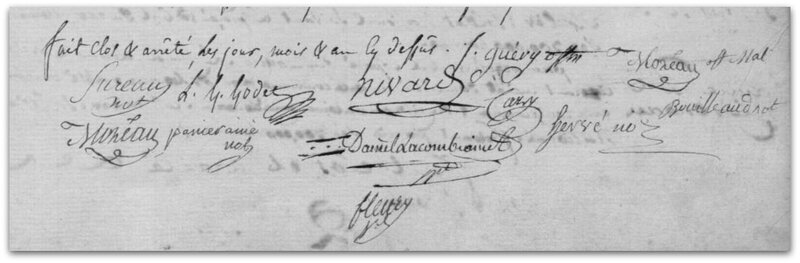 fait clos & arrêté les jour, mois & an cy dessûs. f. guéry offm Moreau off Mal
Sureau not L. G. Godet nivard Cary Bouilleaud not
Moreau panier ainé not Daniel Lacombe ainé Not hervé no
fleury